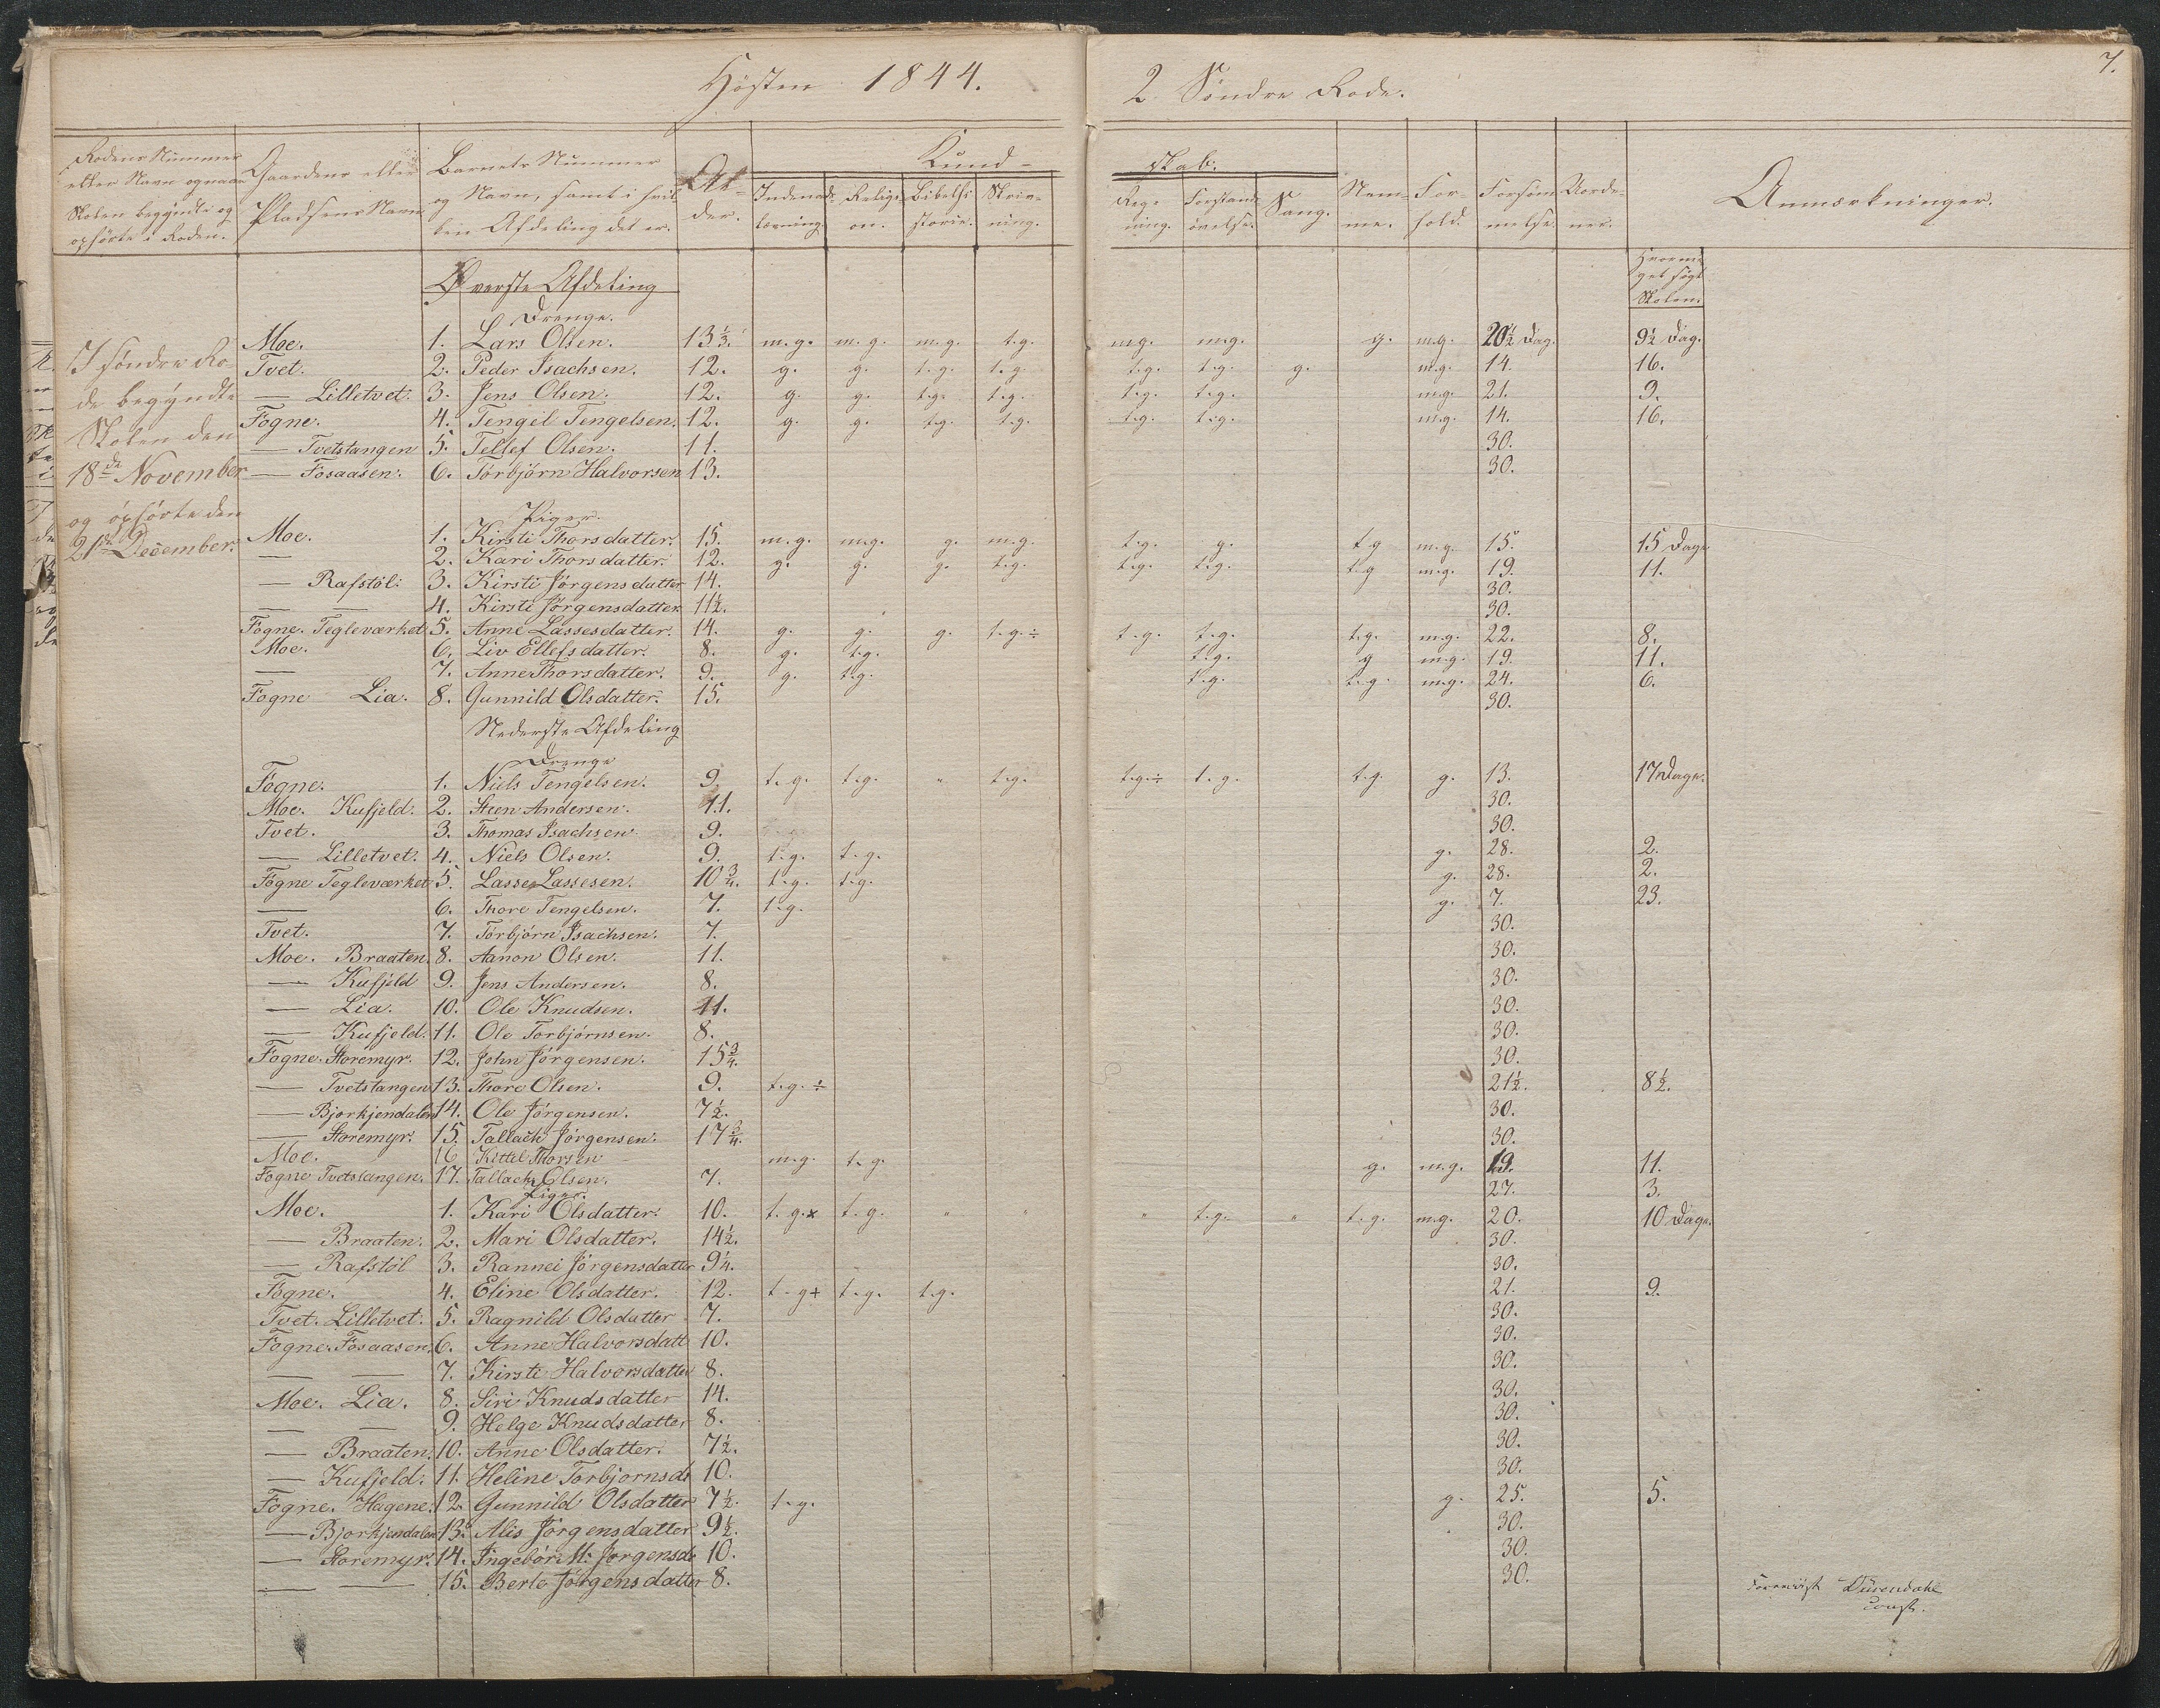 Høsten 1844.
2 Søndre Rode.
7.
Rodens Nummer eller Navn og naar Skolen begyndte og ophørte i Roden.
Gaardens eller Pladsens Navn
Barnets Nummer og Navn, samt i hvilken Afdeling det er.
Alder.
Kundskab.
Indenadlæsning.
Religion.
Bibelhistorie.
Skrivning.
Regning.
Forstandsøvelse.
Sang.
Nemme.
Forhold.
Forsømmelse.
Uordener.
Anmærkninger.
Hvormeget søgt Skolen.
I søndre Rode begyndte Skolen den 18de November og ophørte den 21de December.
Øverste Afdeling
Drenge.
Moe. 1. Lars Olsen. 13 1/3. m.g. m.g. m.g. t.g. mg. m.g. g. m.g. 20 1/2 Dag. 9 1/2 Dag.
Tvet. 2. Peder Isachsen. 12. g. g. t.g. t.g. t.g. t.g. g. m.g. 14. 16.
— Lilletvet. 3. Jens Olsen. 12. g. g. t.g. t.g. t.g. t.g. m.g. 21. 9.
Fogne. 4. Tengil Tengelsen. 12. g. g. t.g. t.g. t.g. t.g. m.g. 14. 16.
— Tvetstangen 5. Tellef Olsen. 11. 30.
— Fosaasen. 6. Torbjørn Halvorsen 13. 30.
Piger.
Moe. 1. Kirsti Thorsdatter. 15. m.g. m.g. g. m.g. t.g. g. t.g m.g. 15. 15 Dage
— 2. Kari Thorsdatter. 12. g. g. g. t.g. t.g. t.g. t.g m.g. 19. 11.
— Rafstøl. 3. Kirsti Jørgensdatter 14. 30.
— — 4. Kirsti Jørgensdatter 11 1/2. 30.
Fogne. Tegleværket 5. Anne Lassesdatter. 14. g. g. g. t.g.÷ t.g. t.g. t.g. m.g. 22. 8.
Moe. 6. Liv Ellefsdatter. 8. g. t.g. t.g. g m.g. 19. 11.
— 7. Anne Thorsdatter. 9. g. t.g. t.g. t.g. m.g. 24. 6.
Fogne Lia. 8. Gunnild Olsdatter. 15. 30.
Nederste Afdeling
Drenge
Fogne. 1. Niels Tengelsen. 9. t.g. t.g. " t.g. t.g.÷ t.g. t.g. g. 13. 17 Dage.
Moe. Kufjeld. 2. Steen Andersen. 11. 30.
Tvet. 3. Thomas Isachsen. 9. 30.
— Lilletvet. 4. Niels Olsen. 9. t.g. t.g. g. 28. 2.
Fogne Tegleværket 5. Lasse Lassesen. 10 3/4. t.g. t.g. g. 28. 2.
— 6. Thore Tengelsen. 7. t.g. g. 7. 23.
Tvet. 7. Torbjørn Isachsen. 7. 30.
Moe. Braaten. 8. Aanon Olsen. 11. 30.
— Kufjeld 9. Jens Andersen. 8. 30.
— Lia. 10. Ole Knudsen. 11. 30.
— Kufjeld. 11. Ole Torbjørnsen. 8. 30.
Fogne. Storemyr. 12. John Jørgensen. 15 3/4. 30.
— Tvetstangen 13. Thore Olsen. 9. t.g.÷ 21 1/2. 8 1/2.
— Bjorkjendalen 14. Ole Jørgensen. 7 1/2. 30.
— Storemyr. 15. Tallach Jørgensen. 17 3/4. 30.
Moe. 16 Kittil Thorsen — m.g. t.g. g. m.g. 19. 11.
Fogne Tvetstangen. 17. Tallach Olsen. 7. 27. 3.
Piger.
Moe. 1. Kari Olsdatter. 10. t.g.× t.g. " " " t.g. " t.g. m.g. 20. 10 Dage.
— Braaten. 2. Mari Olsdatter. 14 1/2. 30.
— Rafstøl 3. Rannei Jørgensdatter 9 1/4. 30.
Fogne. 4. Eline Olsdatter. 12. t.g÷ t.g. t.g. 21. 9.
Tvet. Lilletvet. 5. Ragnild Olsdatter 7. 30.
Fogne. Fosaasen. 6. Anne Halvorsdatt 10. 30.
— — 7. Kirsti Halvorsdatter 8. 30.
Moe. Lia. 8. Siri Knudsdatter 14. 30.
— — 9. Helge Knudsdatter 8. 30.
— Braaten. 10. Anne Olsdatter. 7 1/2. 30.
— Kufjeld. 11. Heline Torbjornsdr 10. 30.
Fogne. Hagene. 12. Gunnild Olsdatter 7 1/2. t.g. g. 25. 5.
— Bjorkjendalen 13. Alis Jørgensdatter 9 1/2. 30.
— Storemyr. 14. Ingebor M: Jørgensdr 10. 30.
— — 15. Berte Jørgensdatter 8. 30.
Forevist
const.